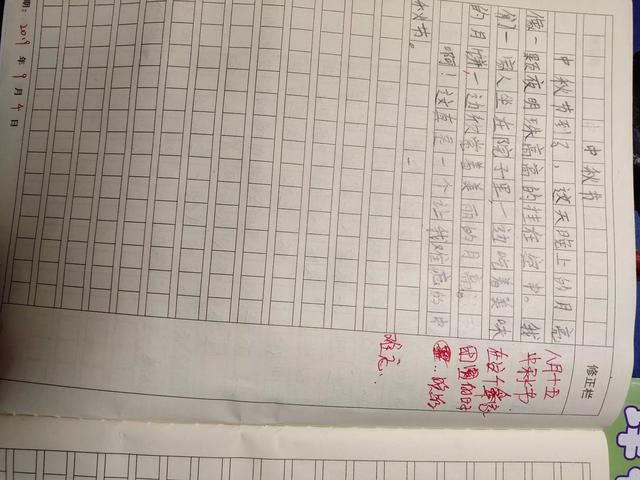 中秋节
中秋节到了，这天晚上的月亮
像一颗夜明珠高高的挂在空中。我
们一家人坐在院子里，一边吃着美味
的月饼，一边欣赏着美丽的月亮。
啊！这真是一个让我难忘的中
秋节。
修正栏
八月十五
中秋节
在这个
团圆的时
难忘
期：2019年9月4日